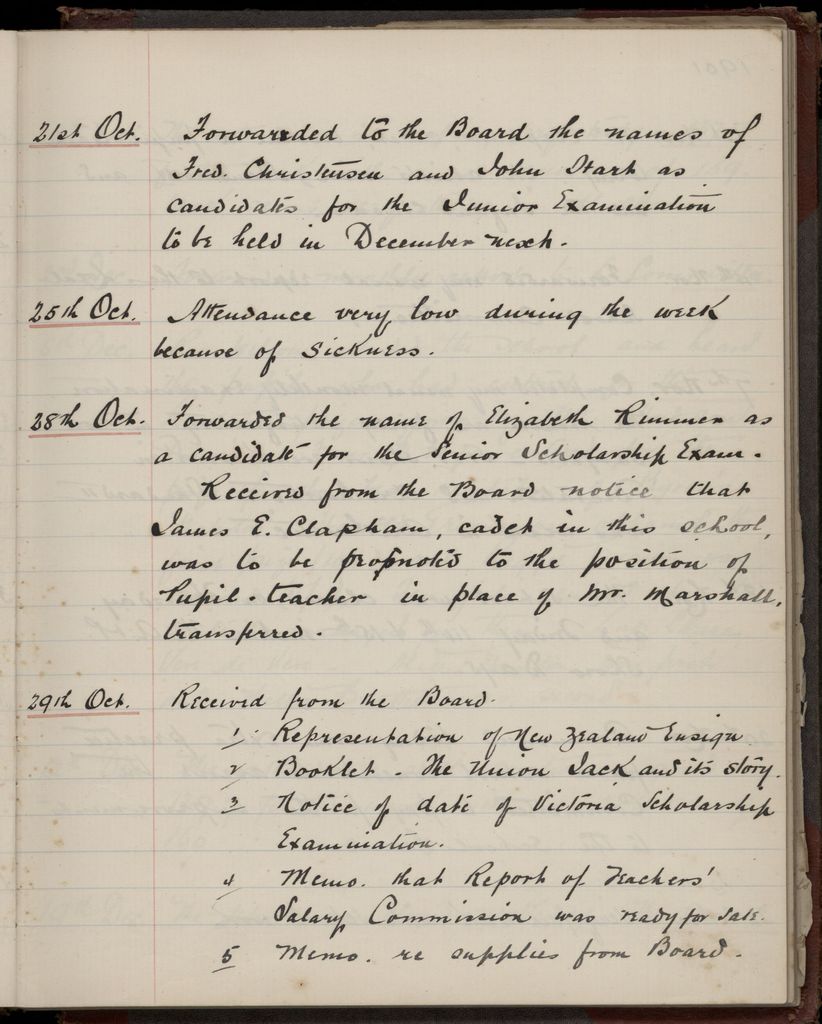 21st Oct. Forwarded to the Board the names of
Fred. Christensen and John Stark as
candidates for the Junior Examination
to be held in December next.
25th Oct. Attendance very low during the week
because of sickness.
28th Oct. Forwarded the name of Elizabeth Rimmer as
a candidate for the Senior Scholarship Exam.
Received from the Board notice that
James E. Clapham, cadet in this school,
was to be promoted to the position of
Pupil-teacher in place of Mr. Marshall,
transferred.
29th Oct. Received from the Board.
1. Representation of New Zealand Ensign
2 Booklet - The Union Jack and its story.
3 Notice of date of Victoria Scholarship
Examination.
4 Memo. that Report of Teachers'
Salary Commission was ready for sale.
5 Memo. re supplies from Board.